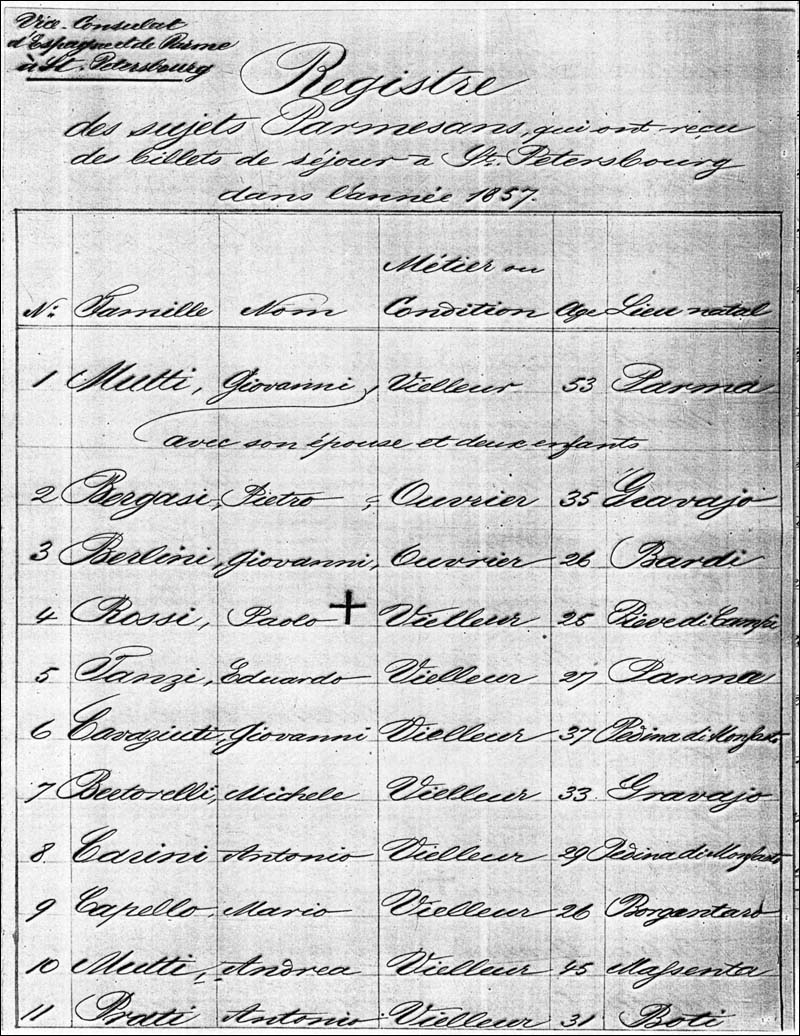 Vice-Consulat
d'Espagne et de Parme
à St. Petersbourg
Registre
des sujets Parmesans, qui ont reçu
des billets de séjour à St. Petersbourg
dans l'année 1857.
Métier ou
No: Famille Nom Condition Age Lieu natal
1 Mutti, Giovanni, Vielleur 53 Parma
avec son épouse et deux enfants
2 Bergasi, Pietro, Ouvrier 35 Gravajo
3 Berlini, Giovanni, Ouvrier 26 Bardi
4 Rossi, Paolo + Vielleur 25 Piève di
5 Tanzi, Eduardo Vielleur 27 Parma
6 Cavaziuti, Giovanni Vielleur 37 Pedina di Monfasto
7 Bertorelli, Michele Vielleur 33 Gravajo
8 Carini Antonio Vielleur 29 Pedina di Monfasto
9 Capello, Mario Vielleur 26 Borgentaro
10 Mutti, Andrea Vielleur 45 Massenta
11 Prati Antonio Vielleur 31 Boti